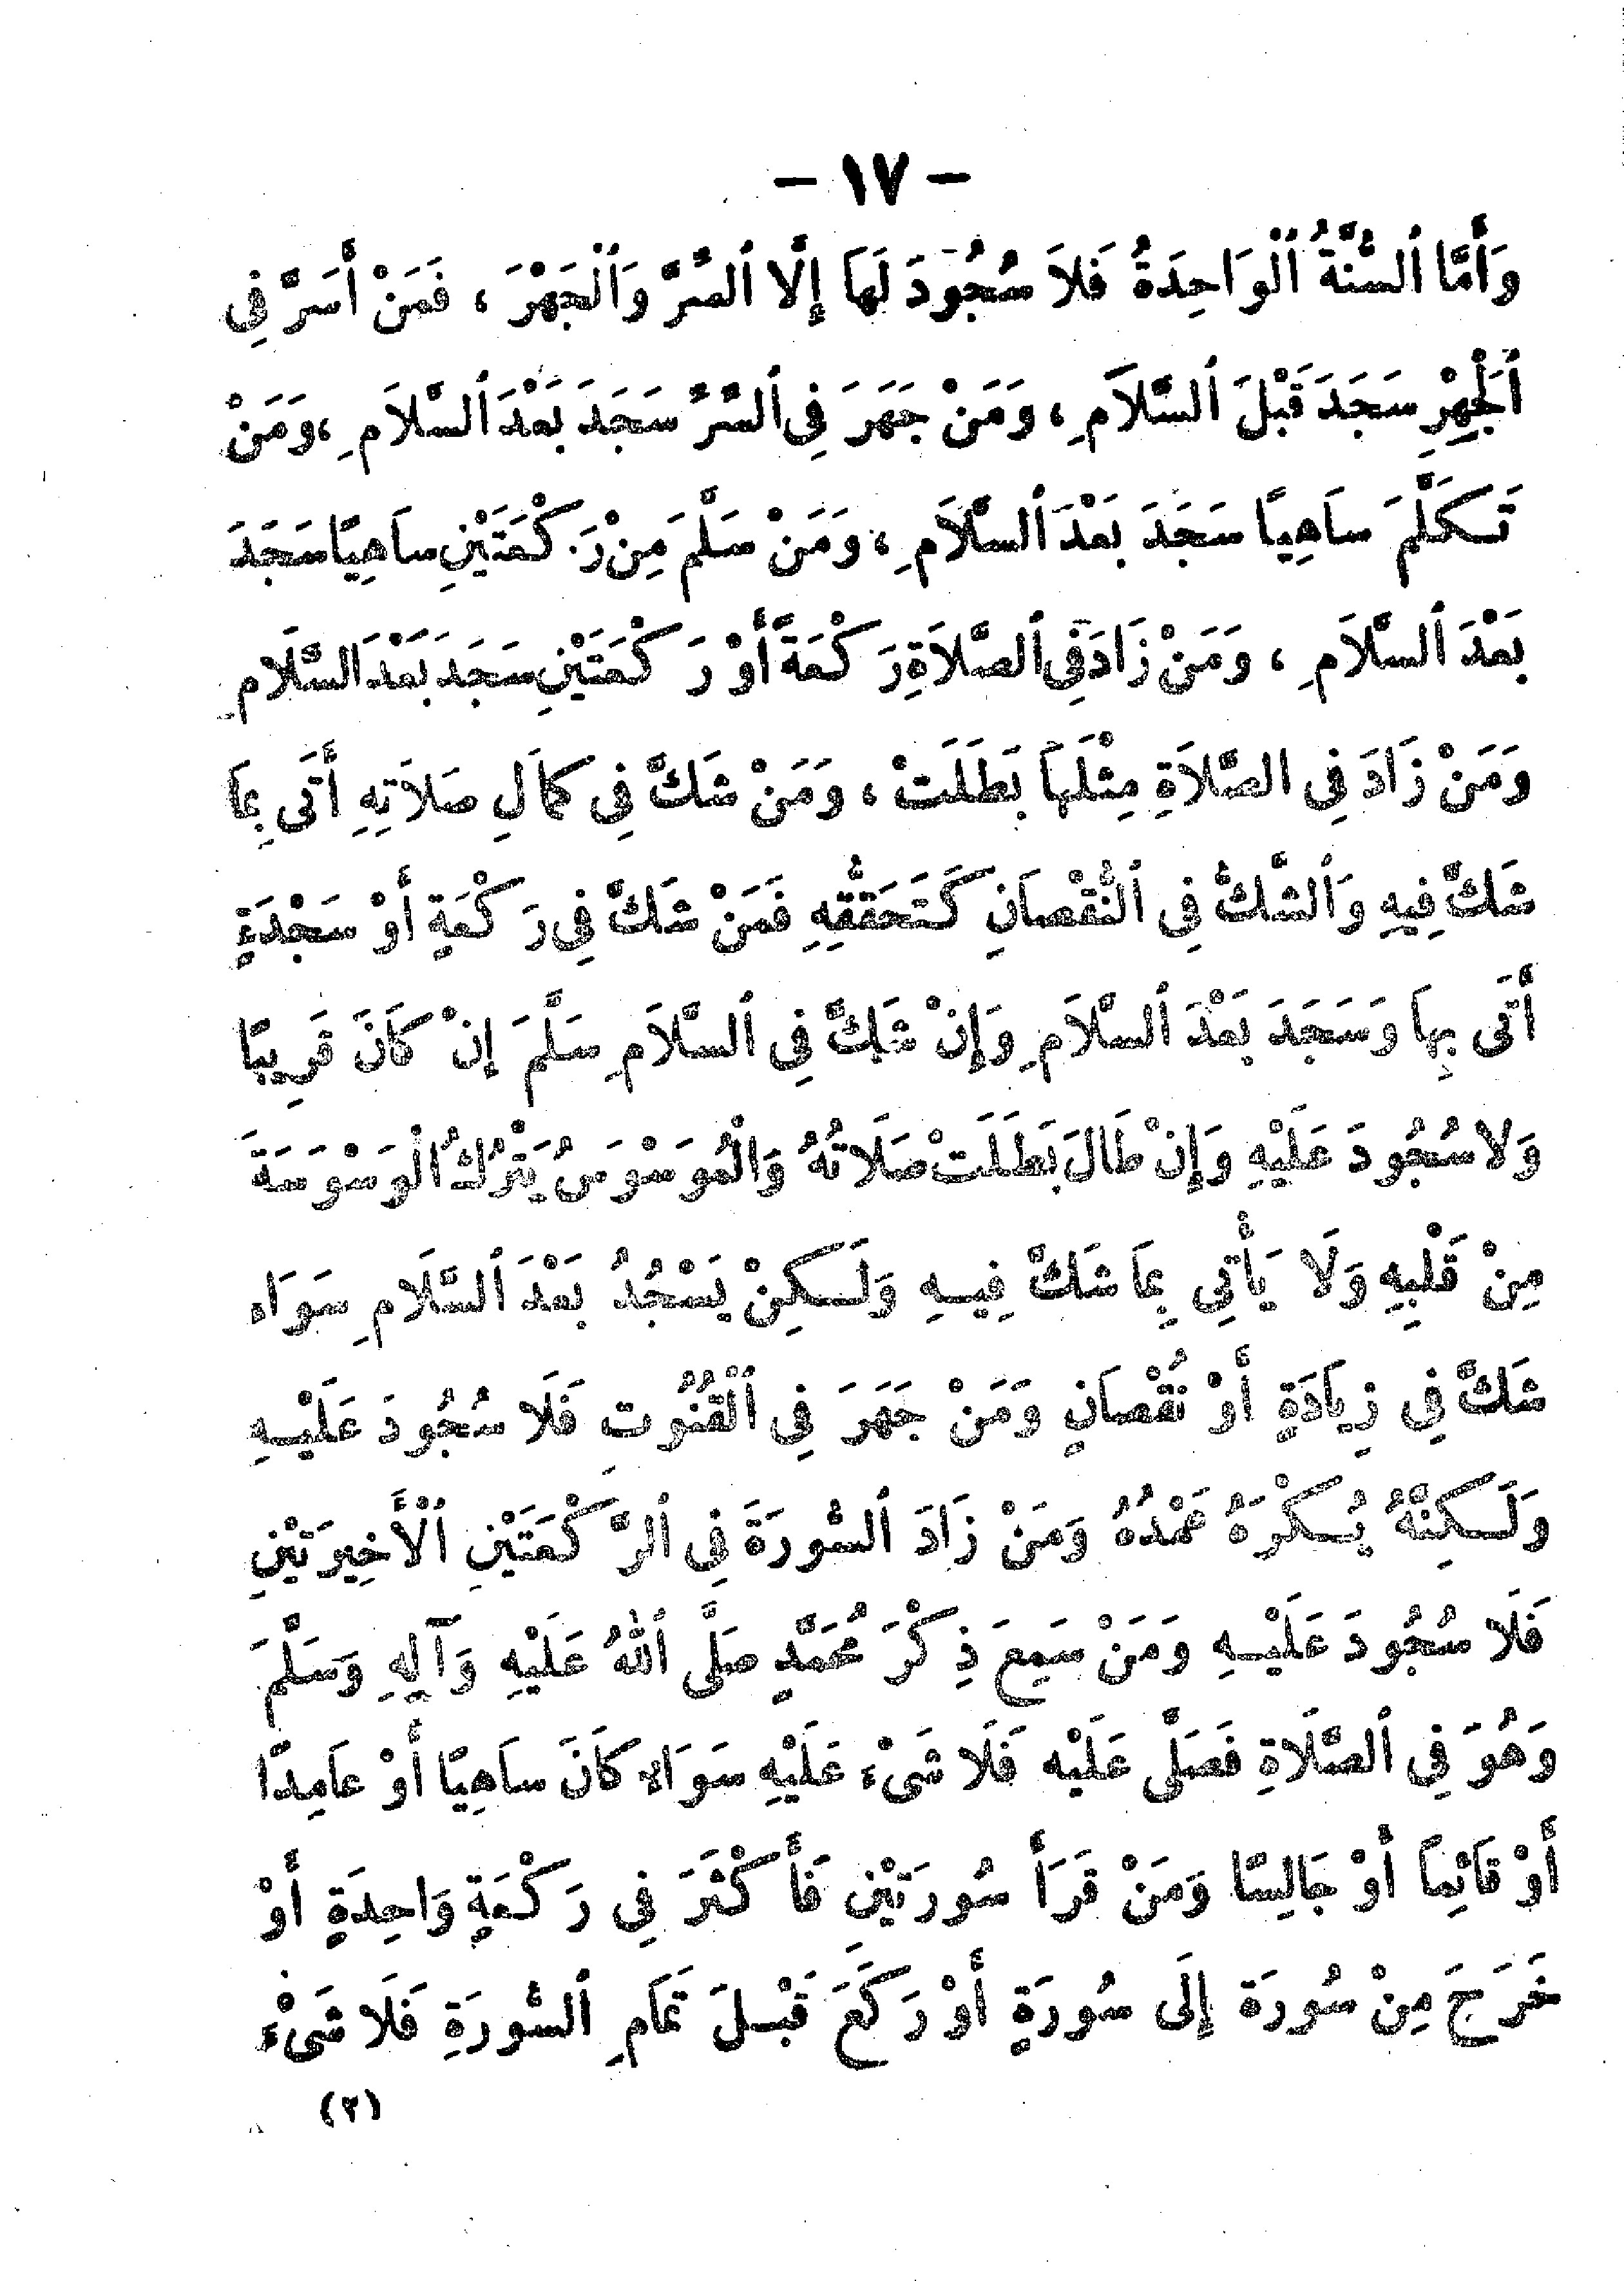 – ١٧ –
وَأَمَّا ٱلسُّنَّةُ ٱلْوَاحِدَةُ فَلاَ سُجُودَ لَهَا إِلَّا ٱلسِّرَّ وَٱلْجَهْرَ ، فَمَنْ أَسَرَّ فِى
ٱلْجَهْرِ سَجَدَ قَبْلَ ٱلسَّلاَمِ ، وَمَنْ جَهَرَ فِى ٱلسِّرِّ سَجَدَ بَعْدَ ٱلسَّلاَمِ ، وَمَنْ
تَكَلَّمَ سَاهِيًا سَجَدَ بَعْدَ ٱلسَّلاَمِ ، وَمَنْ سَلَّمَ مِنْ رَكْعَتَيْنِ سَاهِيًا سَجَدَ
بَعْدَ ٱلسَّلاَمِ ، وَمَنْ زَادَ فِى ٱلصَّلاَةِ رَكْعَةً أَوْ رَكْعَتَيْنِ سَجَدَ بَعْدَ السَّلَامِ
وَمَنْ زَادَ فِى الصَّلاَةِ مِثْلَهَا بَطَلَتْ ، وَمَنْ شَكَّ فِى كَمَالِ صَلاَتِهِ أَتَى بِمَا
شَكَّ فِيهِ وَٱلشَّكُّ فِى ٱلنُّقْصَانِ كَتَحَقُّقِهِ فَمَنْ شَكَّ فِى رَكْعَةٍ أَوْ سَجْدَةٍ
أَتَى بِهَا وَسَجَدَ بَعْدَ ٱلسَّلاَمِ وَإِنْ شَكَّ فِى ٱلسَّلاَمِ سَلَّمَ إِنْ كَانَ قَرِيبًا
وَلاَ سُجُودَ عَلَيْهِ وَإِنْ طَالَ بَطَلَتْ صَلَاتُهُ وَالْمُوَسْوَسُ يَتْرُكُ الْوَسْوَسَةَ
مِنْ قَلْبِهِ وَلَا يَأْتِى بِمَا شَكَّ فِيهِ وَلَكِنْ يَسْجُدُ بَعْدَ ٱلسَّلَامِ سَوَاء
شَكَّ فِى زِيَادَةٍ أَوْ نُقْصَانٍ وَمَنْ جَهَرَ فِى ٱلْقُنُوتِ فَلَا سُجُودَ عَلَيْهِ
وَلَكِنَّهُ يُكْرَهُ عَمْدُهُ وَمَنْ زَادَ ٱلسُّورَةَ فِى ٱلرَّكْعَتَيْنِ ٱلْأَخِيرَتَيْنِ
فَلَا سُجُودَ عَلَيْهِ وَمَنْ سَمِعَ ذِكْرَ مُحَمَّدٍ صَلَّى ٱللهُ عَلَيْهِ وَآلِهِ وَسَلَّمَ
وَهُوَ فِى ٱلصَّلَاةِ فَصَلَّى عَلَيْهِ فَلَا شَىْءَ عَلَيْهِ سَوَاء كَانَ سَاهِيًا أَوْ عَامِدًا
أَوْ قَائِمًا أَوْ جَالِسًا وَمَنْ قَرَأَ سُورَتَيْنِ فَأَكْثَرَ فِى رَكْعَةٍ وَاحِدَةٍ أَوْ
خَرَجَ مِنْ سُورَة إِلَى سُورَةٍ أَوْ رَكَعَ قَبْلَ تَمَامِ ٱلسُّورَةِ فَلَا شَىْءَ
(٢)